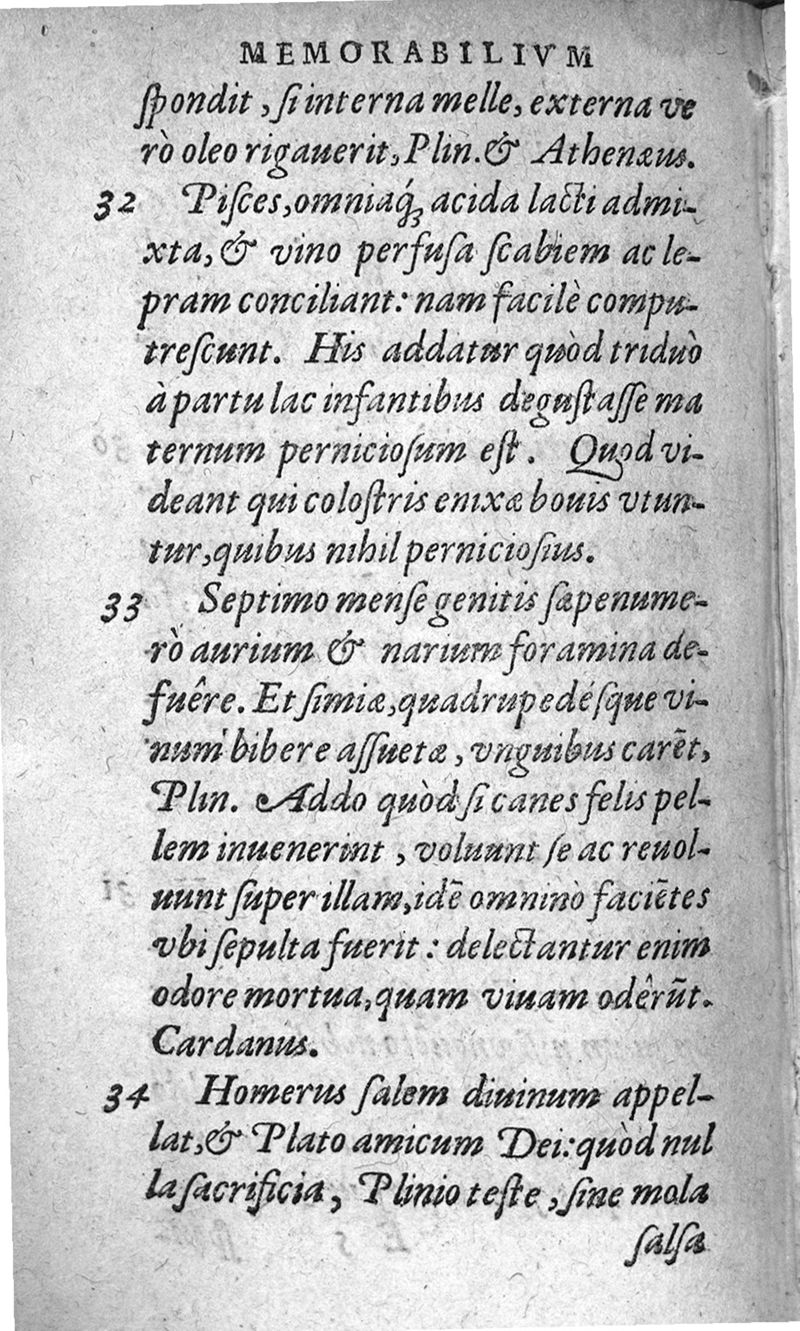 MEMORABILIVM
ſpondit, ſi interna melle, externa ve
rò oleo rigauerit, Plin. & Athenæus.
32 Piſces, omniaq́; acida lacti admi-
xta, & vino perfuſa ſcabiem ac le-
pram conciliant: nam facilè compu-
treſcunt. His addatur quòd triduò
à partu lac infantibus deguſtaſſe ma
ternum pernicioſum eſt. Quod vi-
deant qui coloſtris enixæ bouis vtun-
tur, quibus nihil pernicioſius.
33 Septimo menſe genitis ſæpenume-
rò aurium & narium foramina de-
fuêre. Et ſimiæ, quadrupedéſque vi-
num bibere aſſuetæ, vnguibus carēt,
Plin. Addo quòd ſi canes felis pel-
lem inuenerint, voluunt ſe ac reuol-
uunt ſuper illam, idē omninò faciētes
vbi ſepulta fuerit: delectantur enim
odore mortua, quam viuam odêrūt.
Cardanus.
34 Homerus ſalem diuinum appel-
lat, & Plato amicum Dei: quòd nul
la ſacrificia, Plinio teſte, ſine mola
ſalſa